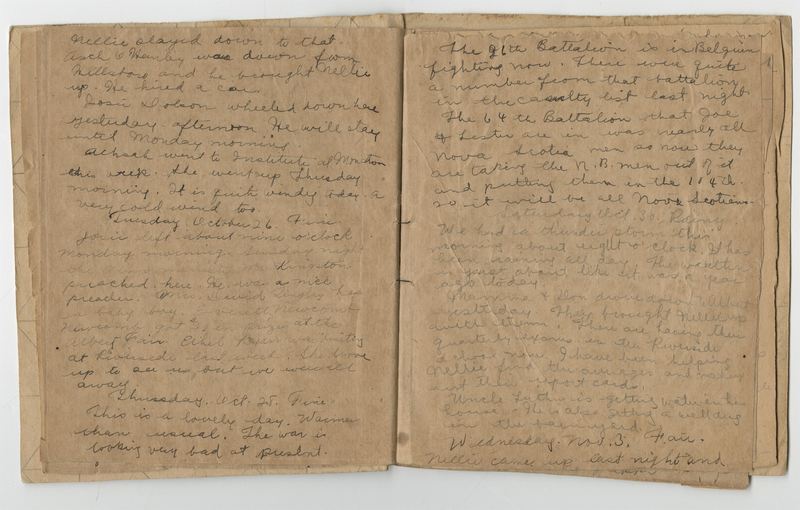 Nellie stayed down to that.
Asch & Henby was down from
Millstone and he brought Nellie
up. He hired a car.
Josie Dobson wheeled down here
yesterday afternoon. He will stay
until Monday morning.
Achsah went to Institute at Moncton
this week. She went up Thursday
morning. It is quite windy today. A
very cold wind too.
Tuesday. October 26. Fine.
Josie left about nine o'clock
Monday morning. Sunday night
Kingston
preached here. He was a nice
preacher. Mrs. David has
a baby boy. Newcomb
Newcomb got prize at the
Albert Fair. Ethel was visiting
at Riverside last week. She drove
up to see us, but we were all
away.
Thursday. Oct. 28. Fine.
This is a lovely day. Warmer
than usual. The war is
looking very bad at present.
The 26th Battalion is in Belgium
fighting now. There were quite
a number from that battalion
in the casulty list last night.
The 64th Battalion that Joe
& Lester are in was nearly all
Nova Scotia men so now they
are taking the N.B. men out of it
and putting them in the 104th.
so it will be all Nova Scotians.
Saturday Oct. 30. Rainy
We had a thunder storm this
morning about eight o'clock. It has
been raining all day. The weather
is just about like it was a year
ago today.
Mamma & Don drove down to Albert
yesterday. They brought Nellie up
with them. There are having their
quarterly exams. in the Riverside
school now. I have been helping
Nellie find the averages and making
out their report cards.
Uncle Luther is getting water in the
house. He is also getting a well dug
in the barnyard.
Wednesday. Nov. 3. Fair.
Nellie came up last night and